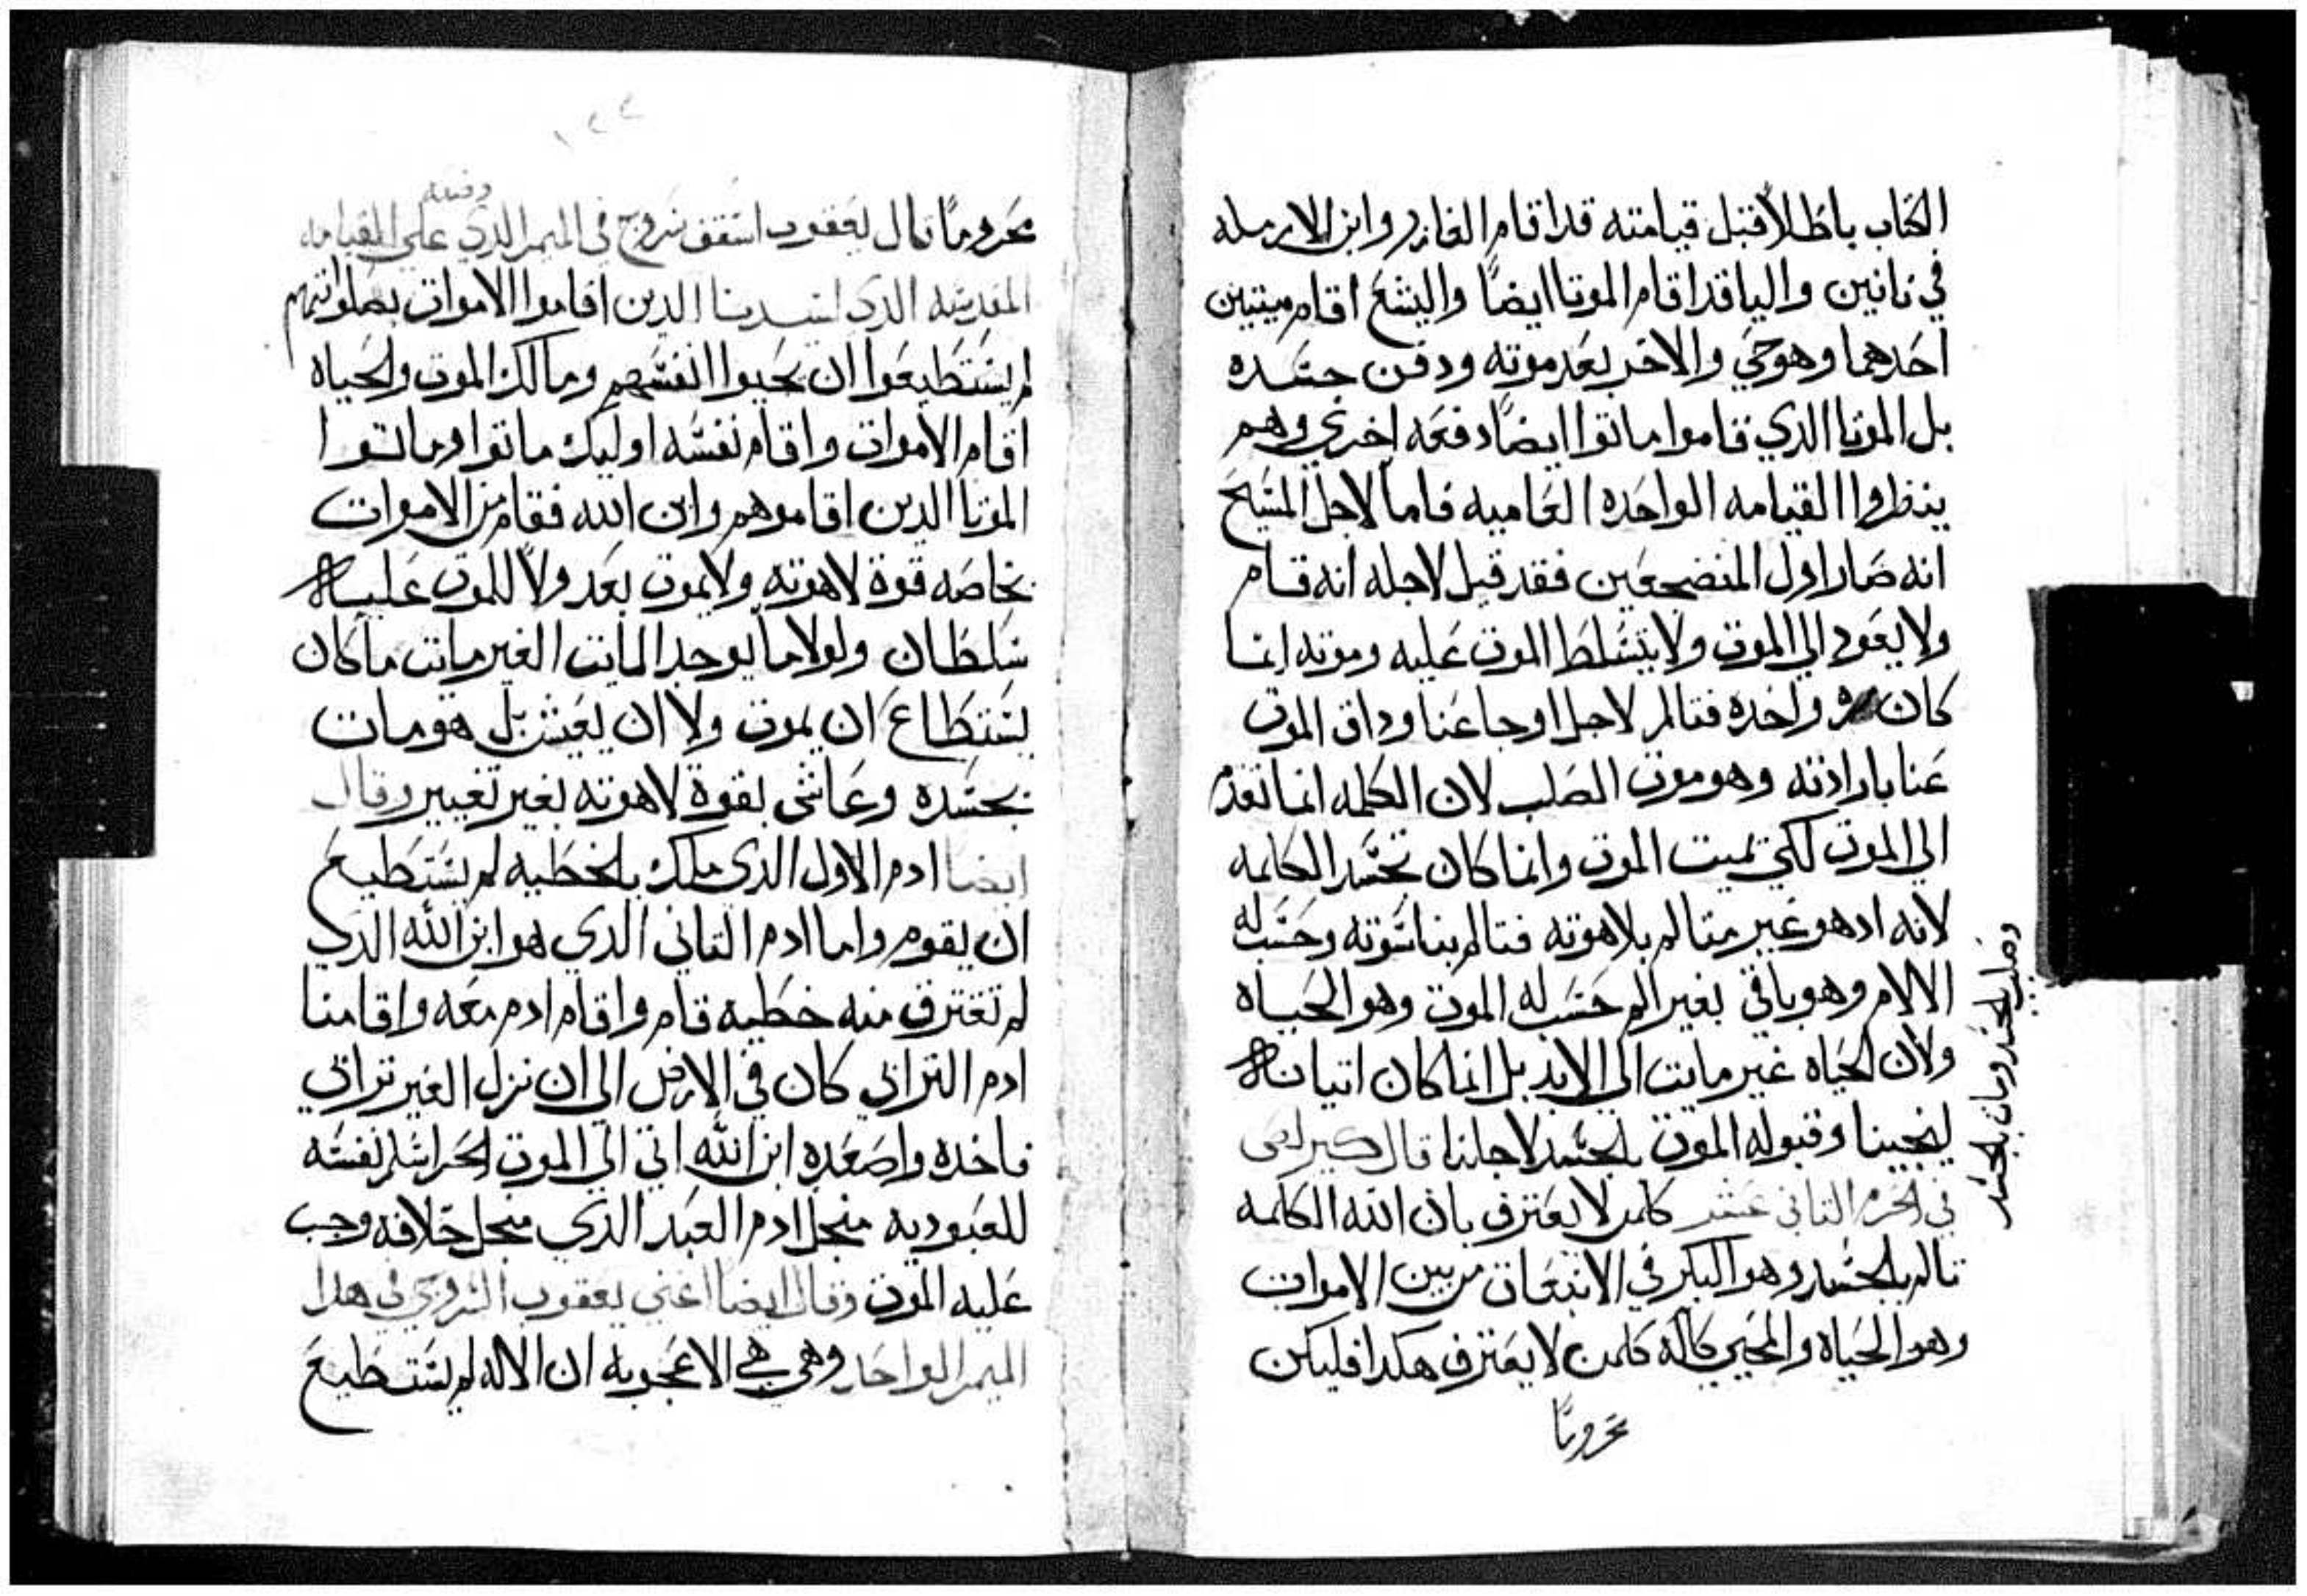 الكتاب باطلاً فقبل قيامته قد اقام العازر وابن الارمله
في نانين واليا قد اقام الموتا ايضاً واليشع اقام ميتيين
احدهما وهو حي والاخر بعد موته ودفن جسده
بل الموتا الدي قاموا ماتوا ايضاً دفعه اخري وهم
ينظروا القيامه الواحده العاميه فاما لاجل المسيح
انه صار اول المنضجعين فقد قيل لاجله انه قام
ولا يعود الي الموت ولا يتسلط الموت عليه وموته انما
كان مره واحده فتالم لاجل اوجاعنا وداق الموت
عنا بارادته وهو موت الصلب لان الكلمه انما تقدم
الي الموت لكي تميت الموت وانما كان تجسد الكلمه
لانه اد هو غير متالم بلاهوته فتالم بناسوته وحسب له
الالام وهو باقي بغير الم حسب له الموت وهو الحياه
ولان الحياه غير مايت الي الابد بل انما كان اتيانه
لينجينا وقبوله الموت بالجسد لاجلنا قال كيرلص
في الحرم التاني عشر كلمن لا يعترف بان الله الكلمه
تالم بالجسد وهو البكر في الانبعات من بين الاموات
وهو الحياه والمحيي كاله فلمن لا يعترف هكدا فليكن
محروماً
وصلب بالجسد ومات بالجسد
١٢٢
محروماً قال يعقوب اسقف سروج في الميمر الدي على القيامه
المقدسه الدي لسيدنا الدين اقاموا الاموات بصلواتهم
لم يستطيعوا ان يحيوا انفسهم ومالك الموت والحياه
اقام الاموات واقام نفسه اوليك ماتوا وماتوا
الموتا الدين اقاموهم وابن الله فقام من الاموات
بخاصه قوة لاهوته ولا يموت بعد ولا للموت عليه
سلطان ولولا ما يوجد المايت الغير مايت ما كان
يستطاع ان يموت ولا ان يعيش بل هو مات
بجسده وعاش بقوة لاهوته بغير تغيير وقال
ايضا ادم الاول الدي ملك بالخطيه لم يستطيع
ان يقوم واما ادم التاني الدي هو ابن الله الدي
لم تقترف منه خطيه قام واقام ادم معه واقامنا
ادم الترابي كان في الارض الي ان نزل الغير ترابي
فاخده واصعده ابن الله اتي الي الموت الحر اسلم نفسه
للعبوديه منجل ادم العبد الدي منجل خلافه وجب
عليه الموت وقال ايضا اعني يعقوب السروجي في هدا
الميمر الواحد وهي هي الاعجوبه ان الاله لم يستطيع